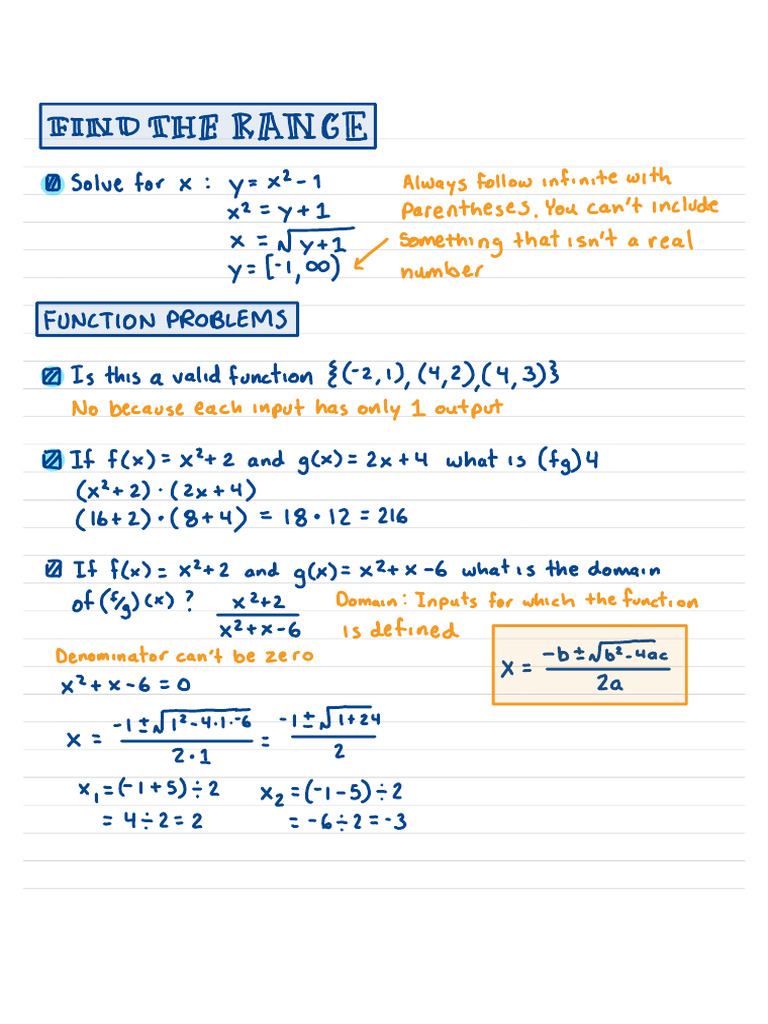 FIND THE RANGE
Solve for x : y = x² - 1
x² = y + 1
x = √y+1
y = [-1, ∞)
Always follow infinite with
Parentheses. You can't include
something that isn't a real
number
FUNCTION PROBLEMS
Is this a valid function {(-2,1), (4,2), (4,3)}
No because each input has only 1 output
If f(x) = x² + 2 and g(x) = 2x + 4 what is (fg)4
(x² + 2) · (2x + 4)
(16 + 2) · (8 + 4) = 18 · 12 = 216
If f(x) = x² + 2 and g(x) = x² + x - 6 what is the domain
of (f/g)(x) ? x²+2 / x²+x-6
Domain : Inputs for which the function
is defined
Denominator can't be zero
x² + x - 6 = 0
x = -b ± √b² - 4ac / 2a
x = -1 ± √1² - 4 · 1 · -6 / 2 · 1 = -1 ± √1 + 24 / 2
x₁ = (-1 + 5) ÷ 2 x₂ = (-1 - 5) ÷ 2
= 4 ÷ 2 = 2 = -6 ÷ 2 = -3